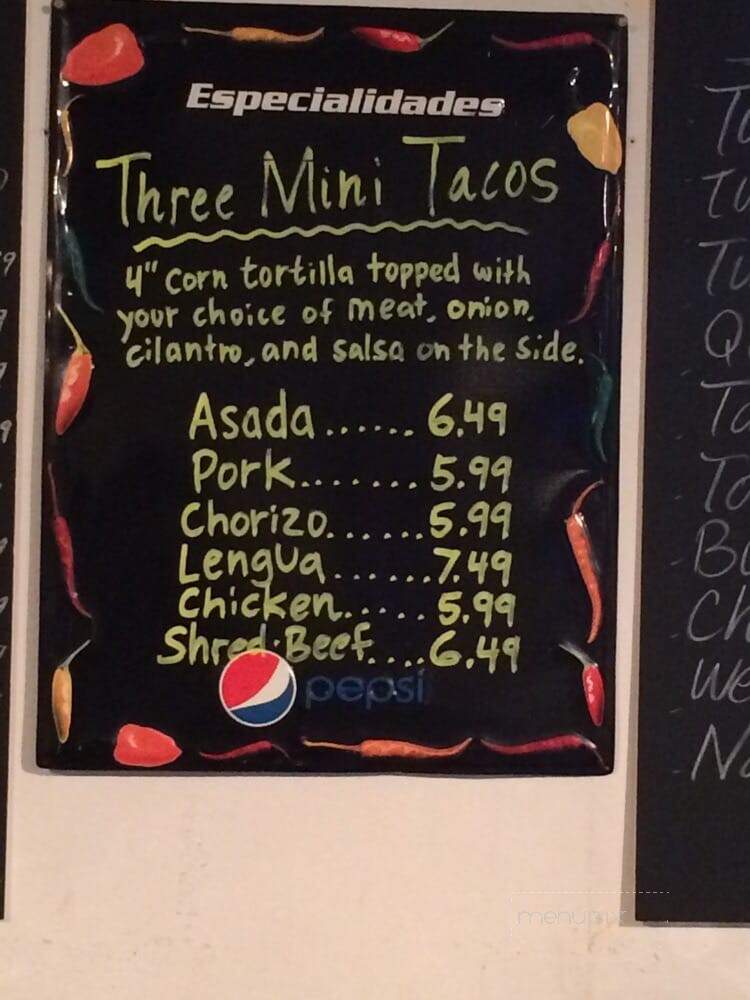 Especialidades
Three Mini Tacos
4" corn tortilla topped with
your choice of meat, onion,
cilantro, and salsa on the side.
Asada...... 6.49
Pork....... 5.99
Chorizo......5.99
Lengua......7.49
Chicken..... 5.99
Shred.Beef....6.49
pepsi